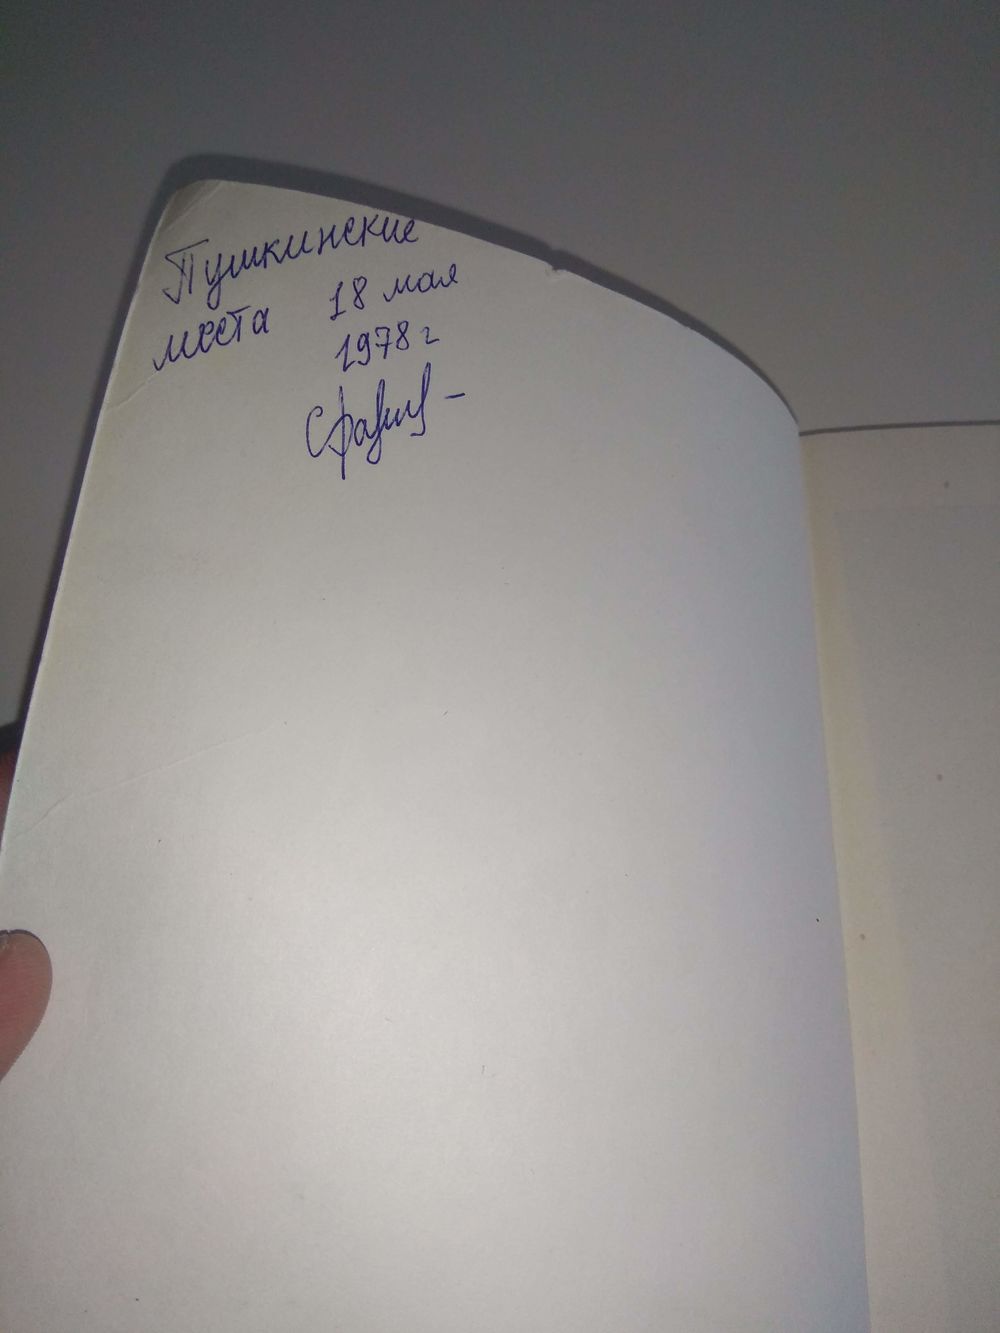 Пушкинские
места 18 мая
1978 г